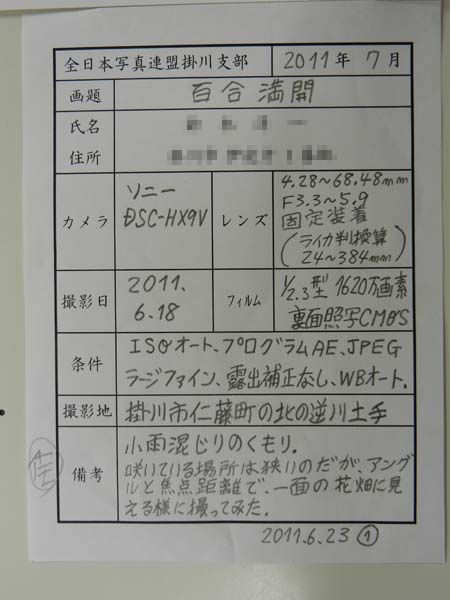 全日本写真連盟掛川支部 2011年 7月
画題 百合満開
氏名
住所
カメラ ソニー DSC-HX9V
レンズ 4.28~68.48mm
F3.3~5.9
固定装着
(ライカ判換算
24~384mm)
撮影日 2011.
6.18
フィルム 1/2.3型 1620万画素
裏面照写CMOS
条件 ISOオート、プログラムAE、JPEG
ラージファイン、露出補正なし、WBオート.
撮影地 掛川市仁藤町の北の逆川土手
備考 小雨混じりのくもり.
咲いている場所は狭いのだが、アング
ルと焦点距離で、一面の花畑に見
える様に撮ってみた.
佳
2011.6.23 ①